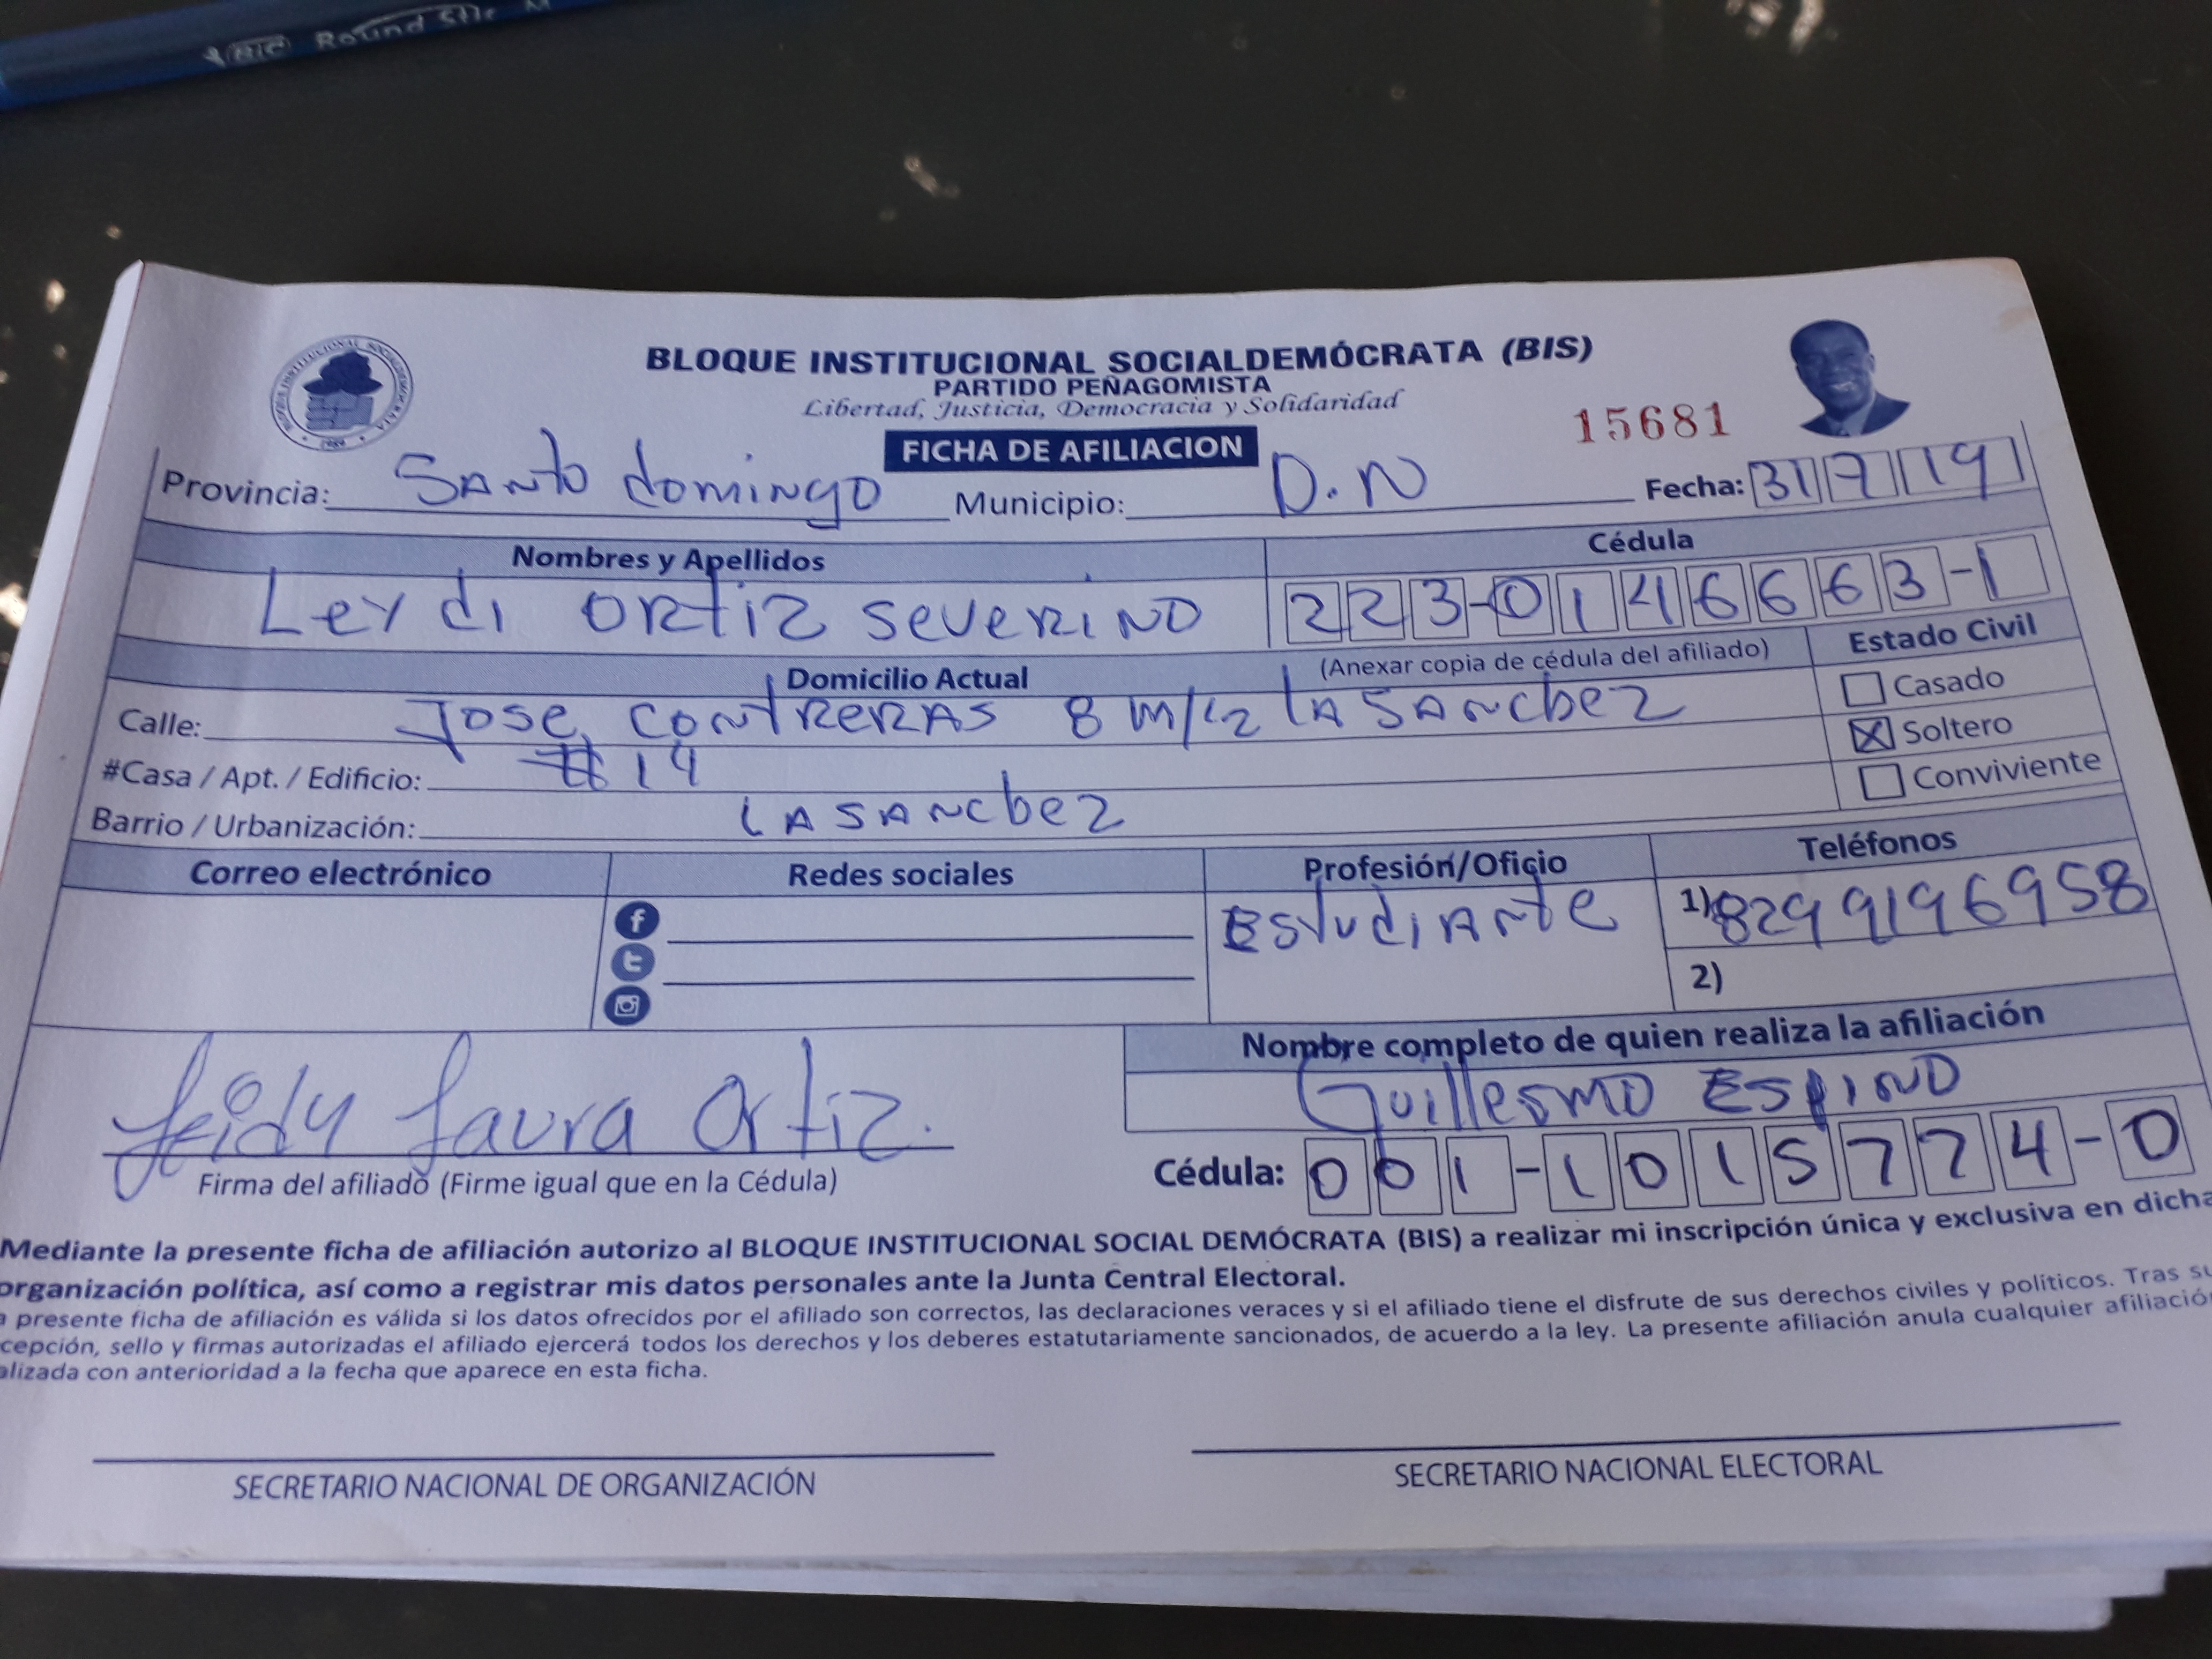 BIC Round Stic M
BLOQUE INSTITUCIONAL SOCIALDEMÓCRATA (BIS)
PARTIDO PEÑAGOMISTA
Libertad, Justicia, Democracia y Solidaridad
15681
FICHA DE AFILIACION
Provincia: Santo domingo Municipio: D.N Fecha: 31 7 19
Nombres y Apellidos Cédula
Leydi ORtiz SeveRiNO 223-0146663-1
Domicilio Actual (Anexar copia de cédula del afiliado) Estado Civil
Calle: Jose, contReRAS 8 m/2 lA SANchez Casado
#Casa / Apt. / Edificio: # 14 Soltero
Barrio / Urbanización: LA SANchez Conviviente
Correo electrónico Redes sociales Profesión/Oficio Teléfonos
EstudiAnte 1) 8299196958
2)
Nombre completo de quien realiza la afiliación
Guillermo Espino
Leidy Laura Ortiz.
Firma del afiliado (Firme igual que en la Cédula) Cédula: 001-1015774-0
Mediante la presente ficha de afiliación autorizo al BLOQUE INSTITUCIONAL SOCIAL DEMÓCRATA (BIS) a realizar mi inscripción única y exclusiva en dicha
organización política, así como a registrar mis datos personales ante la Junta Central Electoral.
a presente ficha de afiliación es válida si los datos ofrecidos por el afiliado son correctos, las declaraciones veraces y si el afiliado tiene el disfrute de sus derechos civiles y políticos. Tras su
cepción, sello y firmas autorizadas el afiliado ejercerá todos los derechos y los deberes estatutariamente sancionados, de acuerdo a la ley. La presente afiliación anula cualquier afiliación
alizada con anterioridad a la fecha que aparece en esta ficha.
SECRETARIO NACIONAL DE ORGANIZACIÓN SECRETARIO NACIONAL ELECTORAL